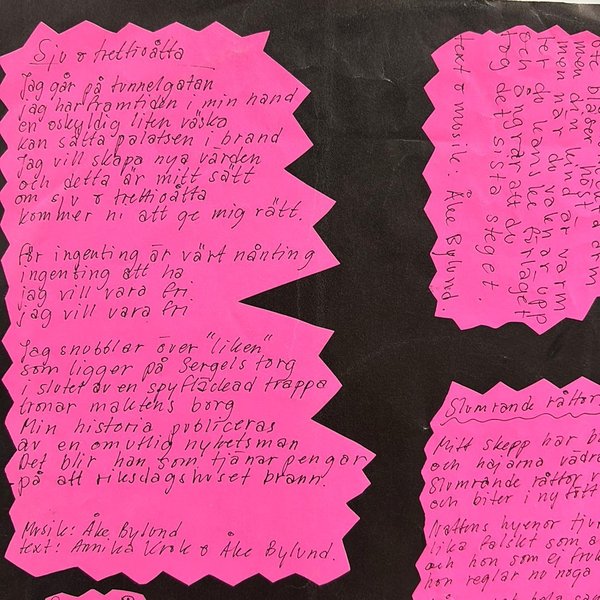 Sju o trettioåtta
Jag går på tunnelgatan
jag har framtiden i min hand
en oskyldig liten väska
kan sätta palatsen i brand
Jag vill skapa nya värden
och detta är mitt sätt
om sju o trettioåtta
kommer ni att ge mig rätt.
För ingenting är värt nånting
ingenting att ha
jag vill vara fri
jag vill vara fri
Jag snubblar över "liken"
som ligger på Sergels torg
i slutet av en spyfläckad trappa
tronar maktens borg
Min historia publiceras
av en omutlig nyhetsman
Det blir han som tjänar pengar
på att riksdagshuset brann.
Musik: Åke Bylund
text: Annika Krok o Åke Bylund.
men din kind är varm
men när du vaknar upp
ter du kanske förlåget
och ångrar att du
tog det sista steget.
text o musik: Åke Bylund.
Slumrande råttor
Mitt skepp har
och hajarna vädra
Slumrande råttor
och biter i ny
Nattens hyenor tju
lika falskt som
och hon som ej
hon reglar nu noga